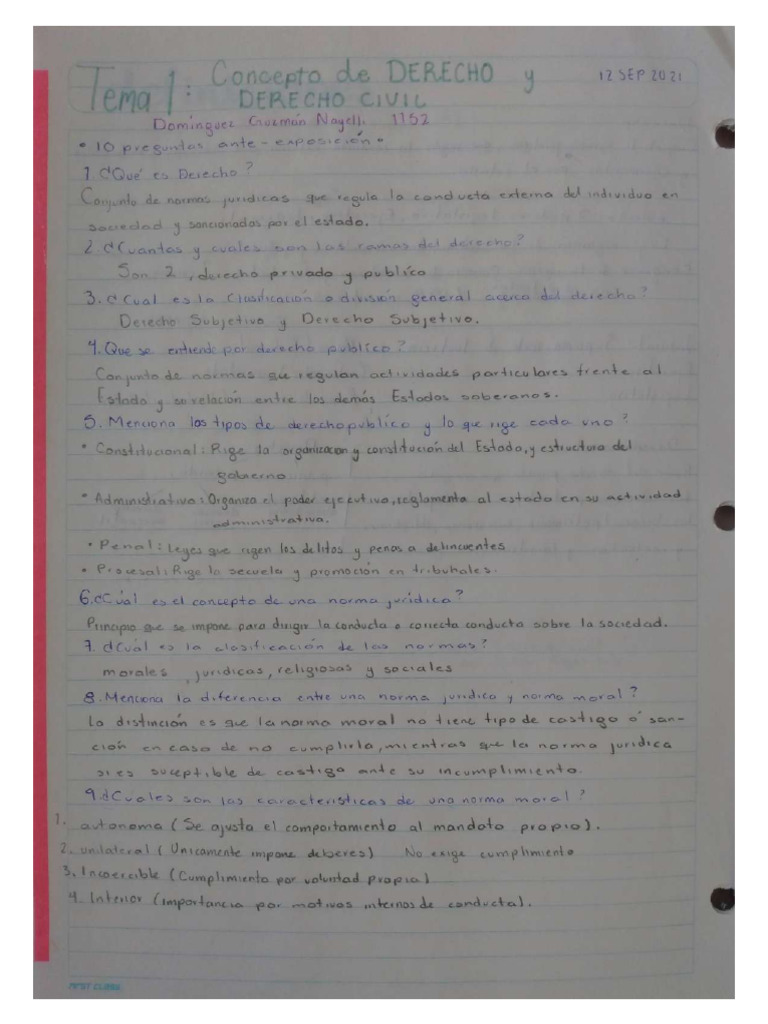 Tema 1: Concepto de DERECHO y
DERECHO CIVIL
12 SEP 2021
Domínguez Guzmán Nayelli. 1152
• 10 preguntas ante-exposición •
1. ¿Qué es Derecho?
Conjunto de normas jurídicas que regula la conducta externa del individuo en
sociedad y sancionadas por el estado.
2. ¿Cuantas y cuales son las ramas del derecho?
Son 2, derecho privado y publico
3. ¿Cual es la Clasificación o división general acerca del derecho?
Derecho Subjetivo y Derecho Subjetivo.
4. Que se entiende por derecho publico?
Conjunto de normas que regulan actividades particulares frente al
Estado y su relación entre los demás Estados soberanos.
5. Menciona los tipos de derecho publico y lo que rige cada uno?
• Constitucional: Rige la organizacion y constitución del Estado, y estructura del
gobierno
• Administrativo: Organiza el poder ejecutivo, reglamenta al estado en su actividad
administrativa.
• Penal: Leyes que rigen los delitos y penas a delincuentes
• Procesal: Rige la secuela y promoción en tribunales.
6. ¿Cuál es el concepto de una norma jurídica?
Principio que se impone para dirigir la conducta o correcta conducta sobre la sociedad.
7. ¿Cuál es la clasificación de las normas?
morales, juridicas, religiosas y sociales
8. Menciona la diferencia entre una norma jurídica y norma moral?
La distinción es que la norma moral no tiene tipo de castigo ó san-
ción en caso de no cumplirla, mientras que la norma jurídica
si es suceptible de castigo ante su incumplimiento.
9. ¿Cuales son las caracteristicas de una norma moral?
1. autonoma (Se ajusta el comportamiento al mandato propio).
2. unilateral (Unicamente impone deberes) No exige cumplimiento
3. Incoercible (Cumplimiento por voluntad propia)
4. Interior (importancia por motivos internos de conducta).
FIRST CLASS